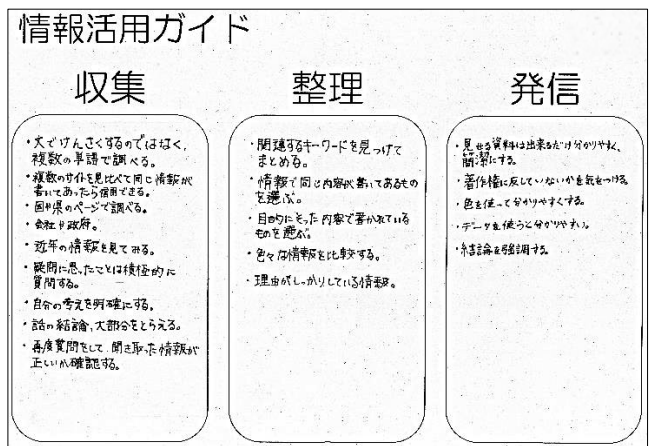 情報活用ガイド
収集
・文でけんさくするのではなく、
複数の単語で調べる。
・複数のサイトを見比べて同じ情報が
書いてあったら信用できる。
・国や県のページで調べる。
・会社や政府。
・近年の情報を見てみる。
・疑問に思ったことは積極的に
質問する。
・自分の考えを明確にする。
・話の結論、大部分をとらえる。
・再度質問をして、聞き取った情報が
正しいか確認する。
整理
・関連するキーワードを見つけて
まとめる。
・情報で同じ内容が書いてあるもの
を選ぶ。
・目的にそった内容で書かれている
ものを選ぶ。
・色々な情報を比較する。
・理由がしっかりしている情報。
発信
・見せる資料は出来るだけ分かりやすく、
簡潔にする。
・著作権に反していないかを気をつける。
・色を使って分かりやすくする。
・データを使うと分かりやすい。
・結論を強調する。